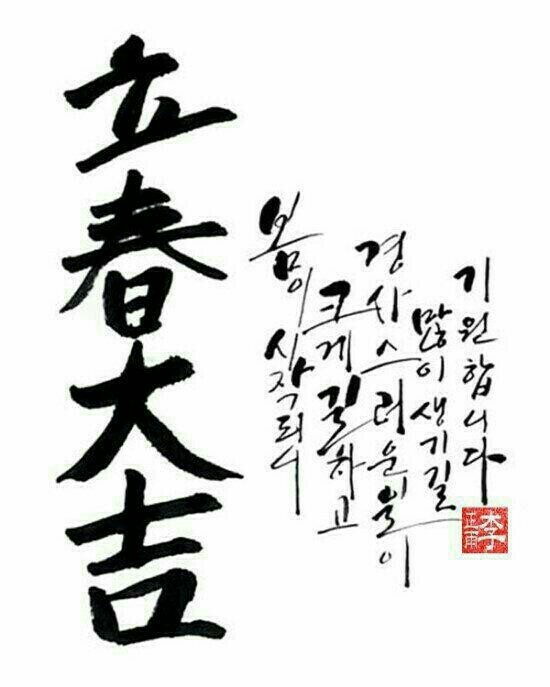 立春大吉
봄이 시작되니
크게 길하고
경사스러운 일이
많이 생기길
기원합니다